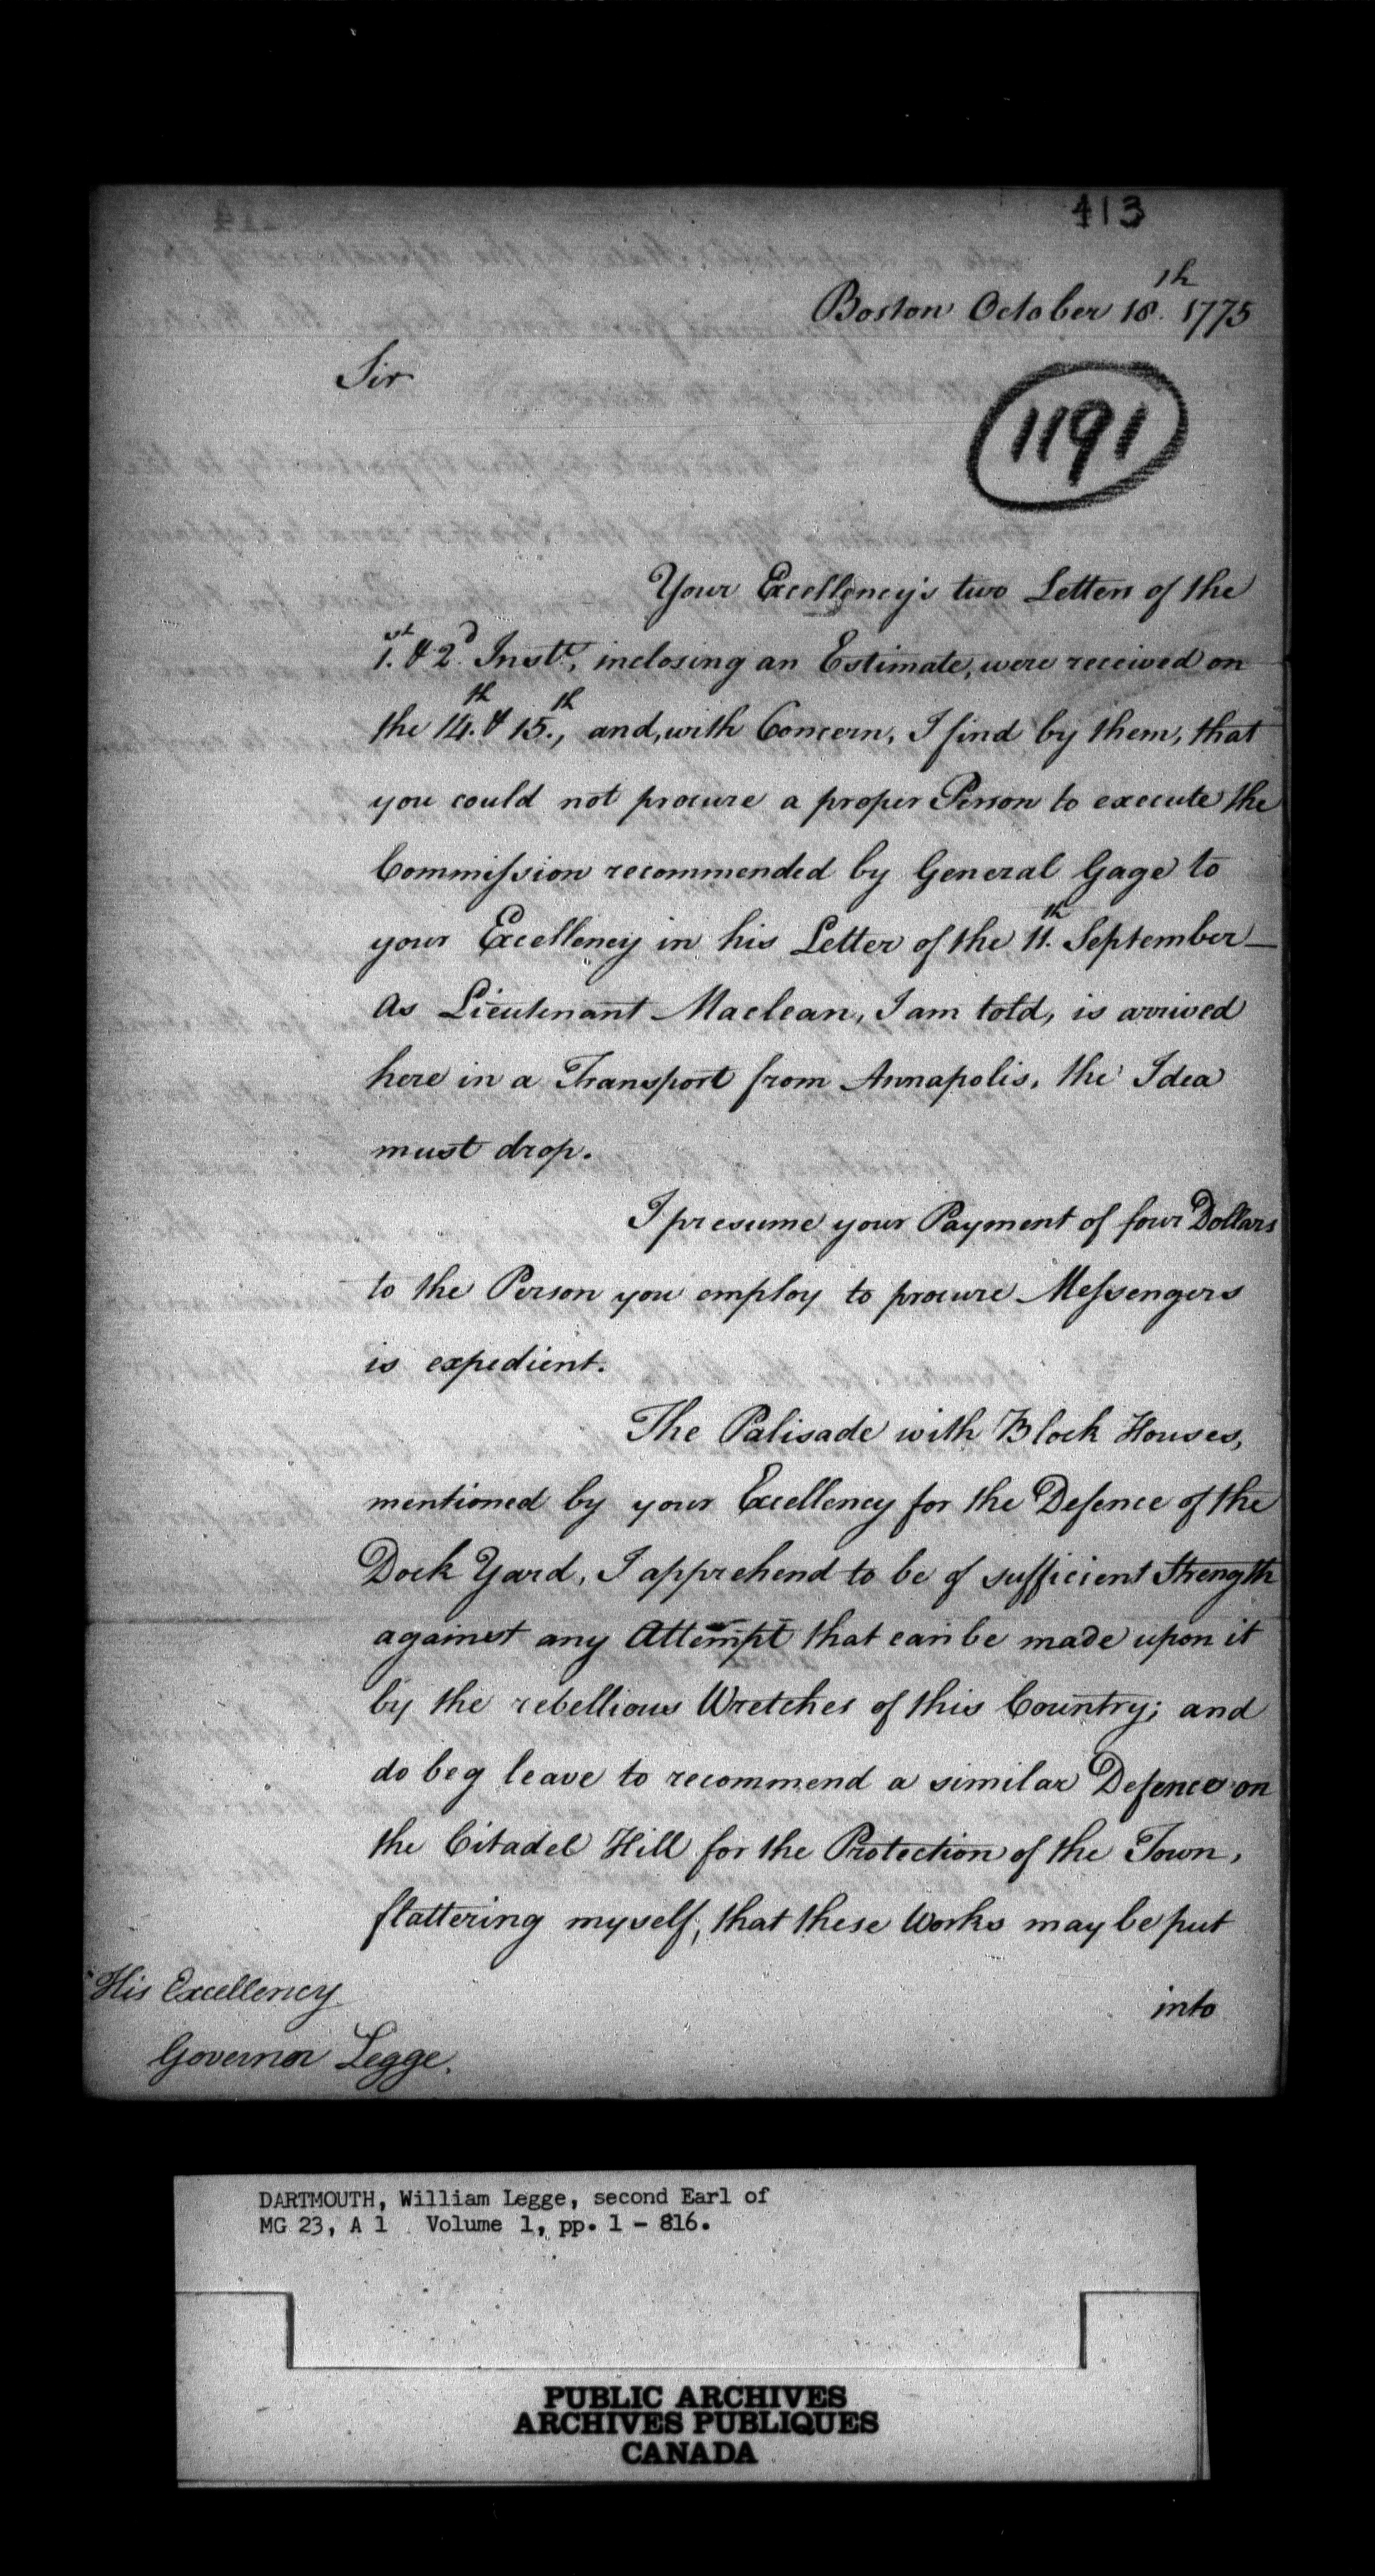 413
Boston October 18.th 1775
Sir
1191
Your Excellency's two Letters of the
1.st & 2.d Inst.t, inclosing an Estimate, were received on
the 14.th & 15.th, and, with Concern, I find by them, that
you could not procure a proper Person to execute the
Commission recommended by General Gage to
your Excellency in his Letter of the 11.th September —
As Lieutenant Maclean, I am told, is arrived
here in a Transport from Annapolis, the Idea
must drop.
I presume your Payment of four Dollars
to the Person you employ to procure Messengers
is expedient.
The Palisade with Block Houses,
mentioned by your Excellency for the Defence of the
Dock Yard, I apprehend to be of sufficient Strength
against any Attempt that can be made upon it
by the rebellious Wretches of this Country; and
do beg leave to recommend a similar Defence on
the Citadel Hill for the Protection of the Town,
flattering myself, that these Works may be put
into
His Excellency
Governor Legge.
DARTMOUTH, William Legge, second Earl of
MG 23, A 1 Volume 1, pp. 1 - 816.
PUBLIC ARCHIVES
ARCHIVES PUBLIQUES
CANADA